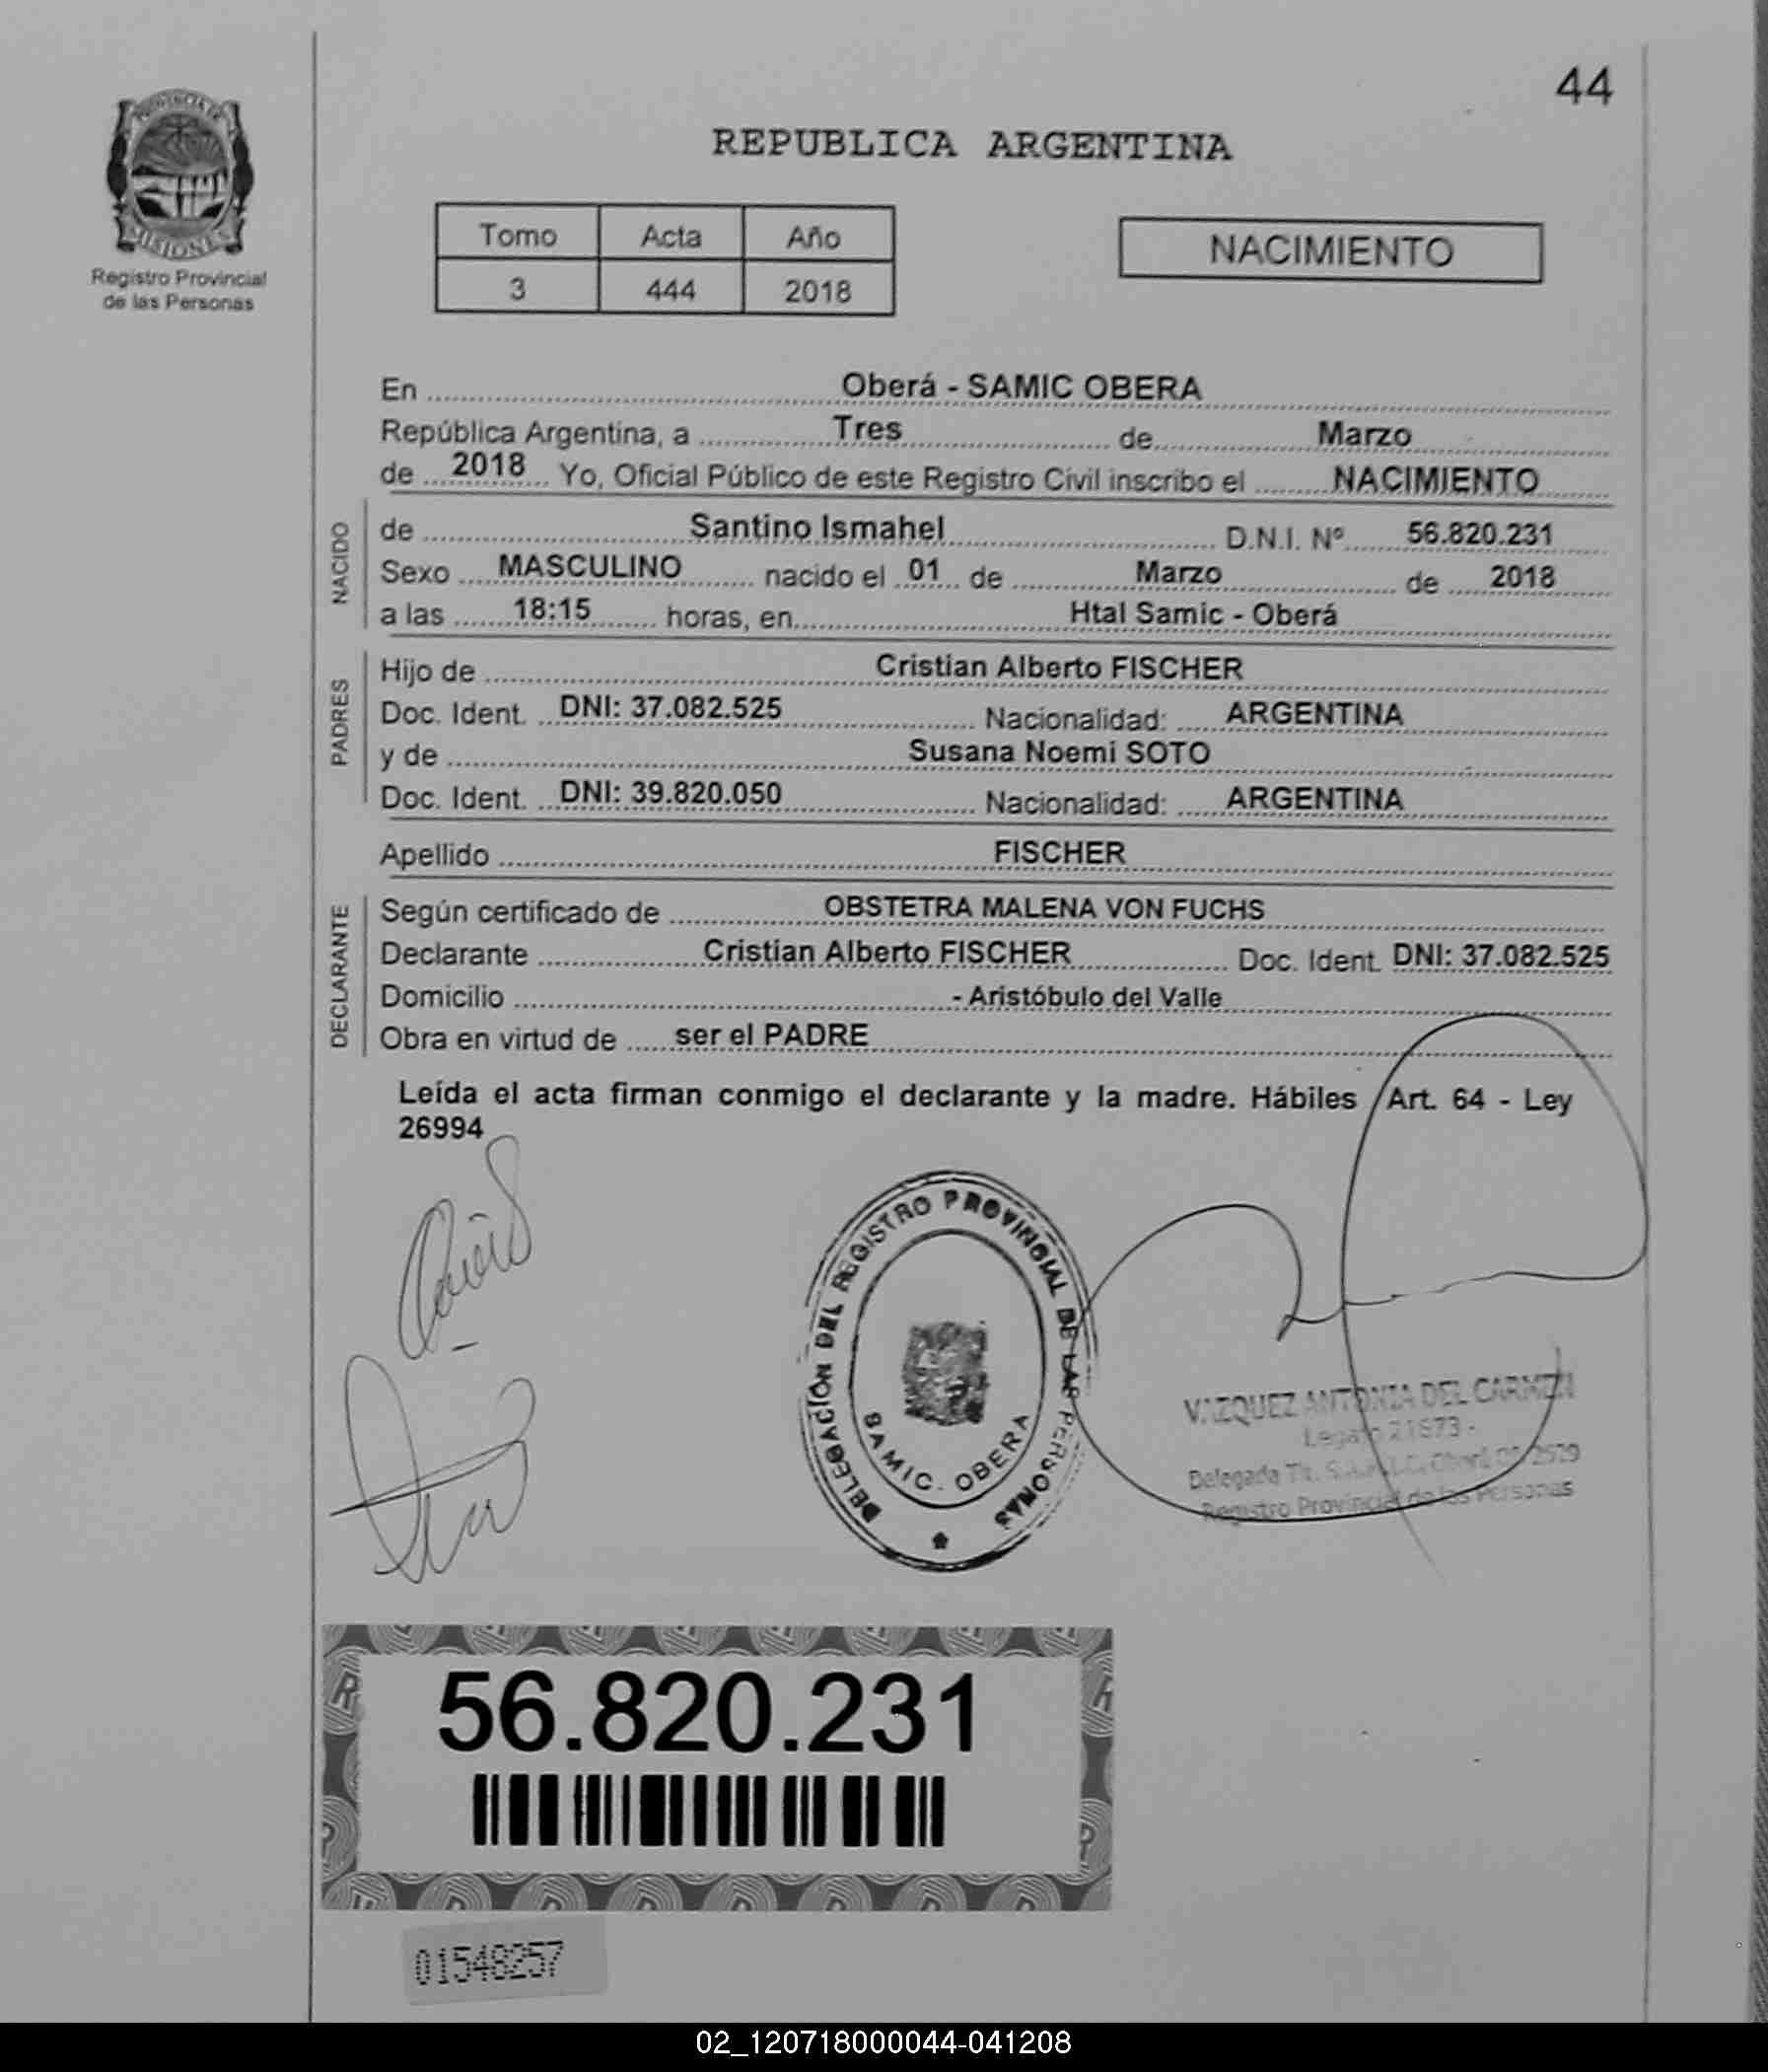 44
PROVINCIA DE
MISIONES
Registro Provincial
de las Personas
REPUBLICA ARGENTINA
Tomo Acta Año
3 444 2018
NACIMIENTO
En Oberá - SAMIC OBERA
República Argentina, a Tres de Marzo
de 2018 Yo, Oficial Público de este Registro Civil inscribo el NACIMIENTO
NACIDO
de Santino Ismahel D.N.I. Nº 56.820.231
Sexo MASCULINO nacido el 01 de Marzo de 2018
a las 18:15 horas, en Htal Samic - Oberá
PADRES
Hijo de Cristian Alberto FISCHER
Doc. Ident. DNI: 37.082.525 Nacionalidad: ARGENTINA
y de Susana Noemi SOTO
Doc. Ident. DNI: 39.820.050 Nacionalidad: ARGENTINA
Apellido FISCHER
DECLARANTE
Según certificado de OBSTETRA MALENA VON FUCHS
Declarante Cristian Alberto FISCHER Doc. Ident. DNI: 37.082.525
Domicilio - Aristóbulo del Valle
Obra en virtud de ser el PADRE
Leída el acta firman conmigo el declarante y la madre. Hábiles Art. 64 - Ley
26994
DELEGACIÓN DEL REGISTRO PROVINCIAL DE LAS PERSONAS
SAMIC. OBERA
VAZQUEZ ANTONIA DEL CARMEN
Legajo 21673 -
Delegada Tit. S.A.M.I.C. Oberá
Registro Provincial de las Personas
56.820.231
01548257
02_120718000044-041208